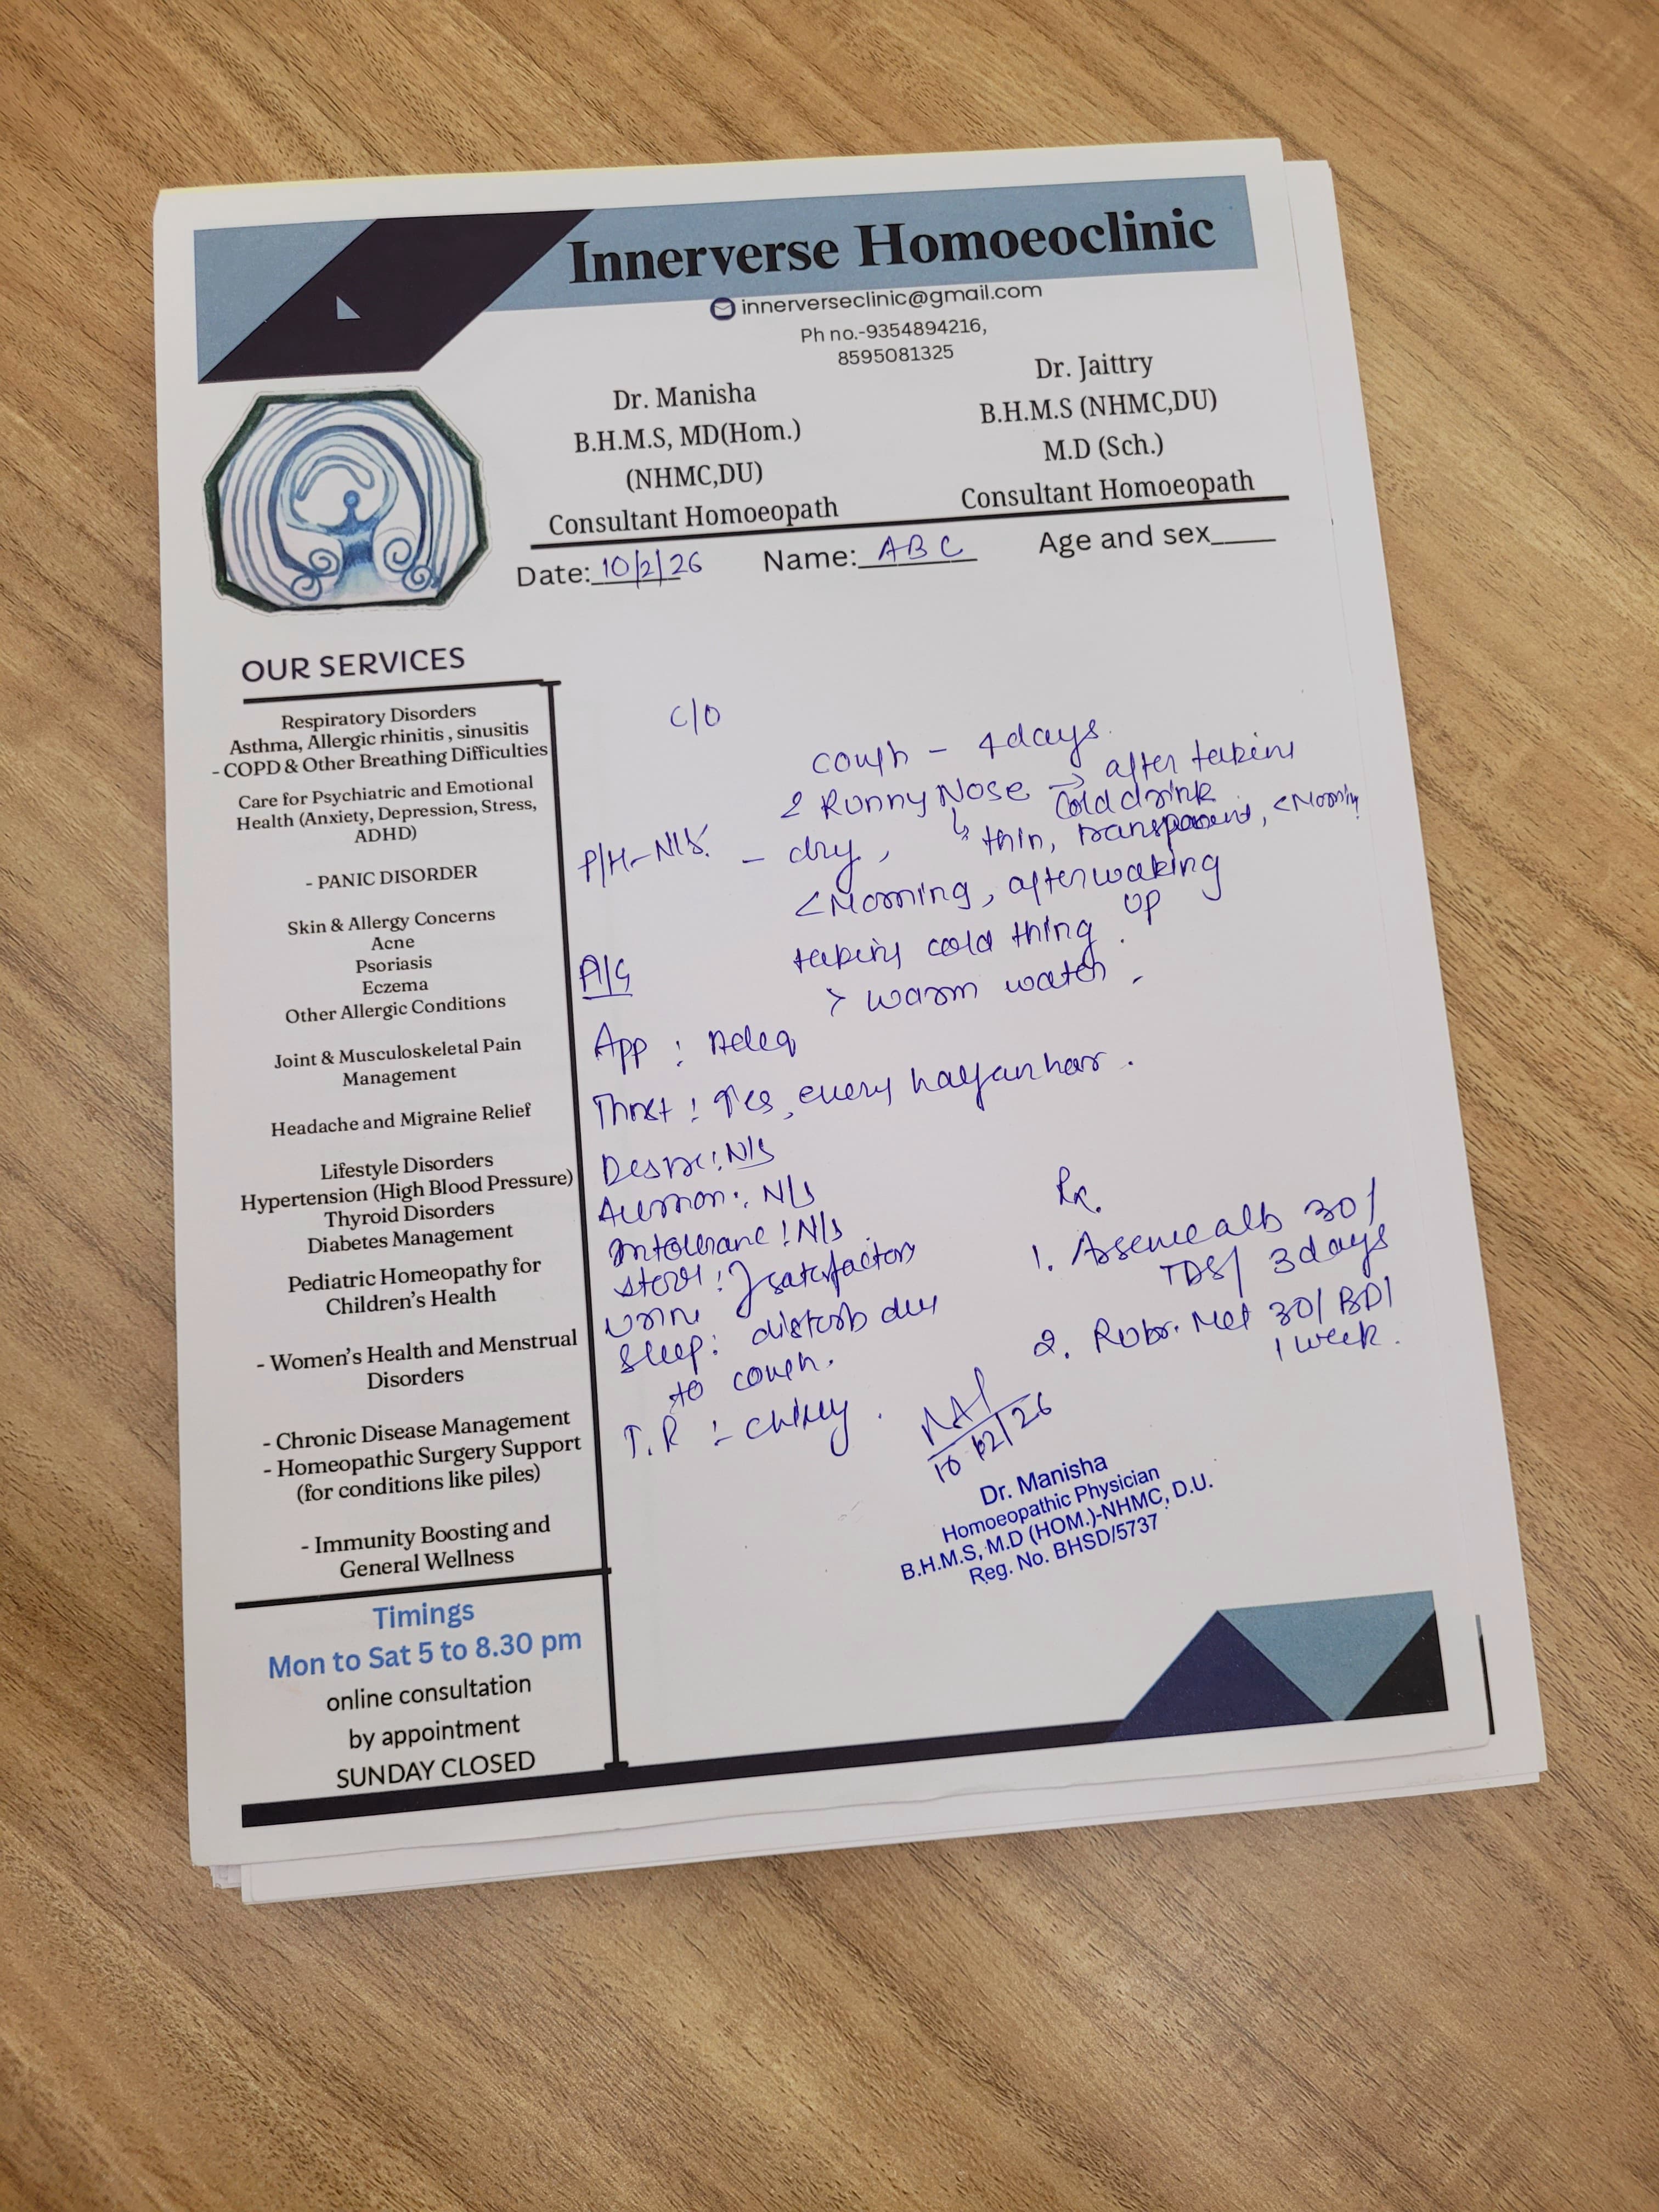 Innerverse Homoeoclinic
innerverseclinic@gmail.com
Ph no.-9354894216,
8595081325
Dr. Manisha
B.H.M.S, MD(Hom.)
(NHMC,DU)
Consultant Homoeopath
Dr. Jaittry
B.H.M.S (NHMC,DU)
M.D (Sch.)
Consultant Homoeopath
Date: 10/2/26 Name: ABC Age and sex____
OUR SERVICES
Respiratory Disorders
Asthma, Allergic rhinitis , sinusitis
- COPD & Other Breathing Difficulties
Care for Psychiatric and Emotional
Health (Anxiety, Depression, Stress,
ADHD)
- PANIC DISORDER
Skin & Allergy Concerns
Acne
Psoriasis
Eczema
Other Allergic Conditions
Joint & Musculoskeletal Pain
Management
Headache and Migraine Relief
Lifestyle Disorders
Hypertension (High Blood Pressure)
Thyroid Disorders
Diabetes Management
Pediatric Homeopathy for
Children's Health
- Women's Health and Menstrual
Disorders
- Chronic Disease Management
- Homeopathic Surgery Support
(for conditions like piles)
- Immunity Boosting and
General Wellness
Timings
Mon to Sat 5 to 8.30 pm
online consultation
by appointment
SUNDAY CLOSED
C/O
cough - 4 days.
& Runny Nose → after taking
cold drink
↳ thin, transparent, < Morning
P/H - N/S. - dry,
< Morning, after waking
up
taking cold thing.
> warm water.
App :
Thirst : Yes, every half an hour.
Desire : N/S
Aversion : N/S
Intolerance : N/S
Stool : } satisfactory
Urine
Sleep : disturb due
to cough.
T.R :- chilly.
Rx.
1. Arsenic alb 30/
TDS/ 3 days
2. Rubr. Met 30/ BD/
1 week.
10/02/26
Dr. Manisha
Homoeopathic Physician
B.H.M.S, M.D (HOM.)-NHMC, D.U.
Reg. No. BHSD/5737